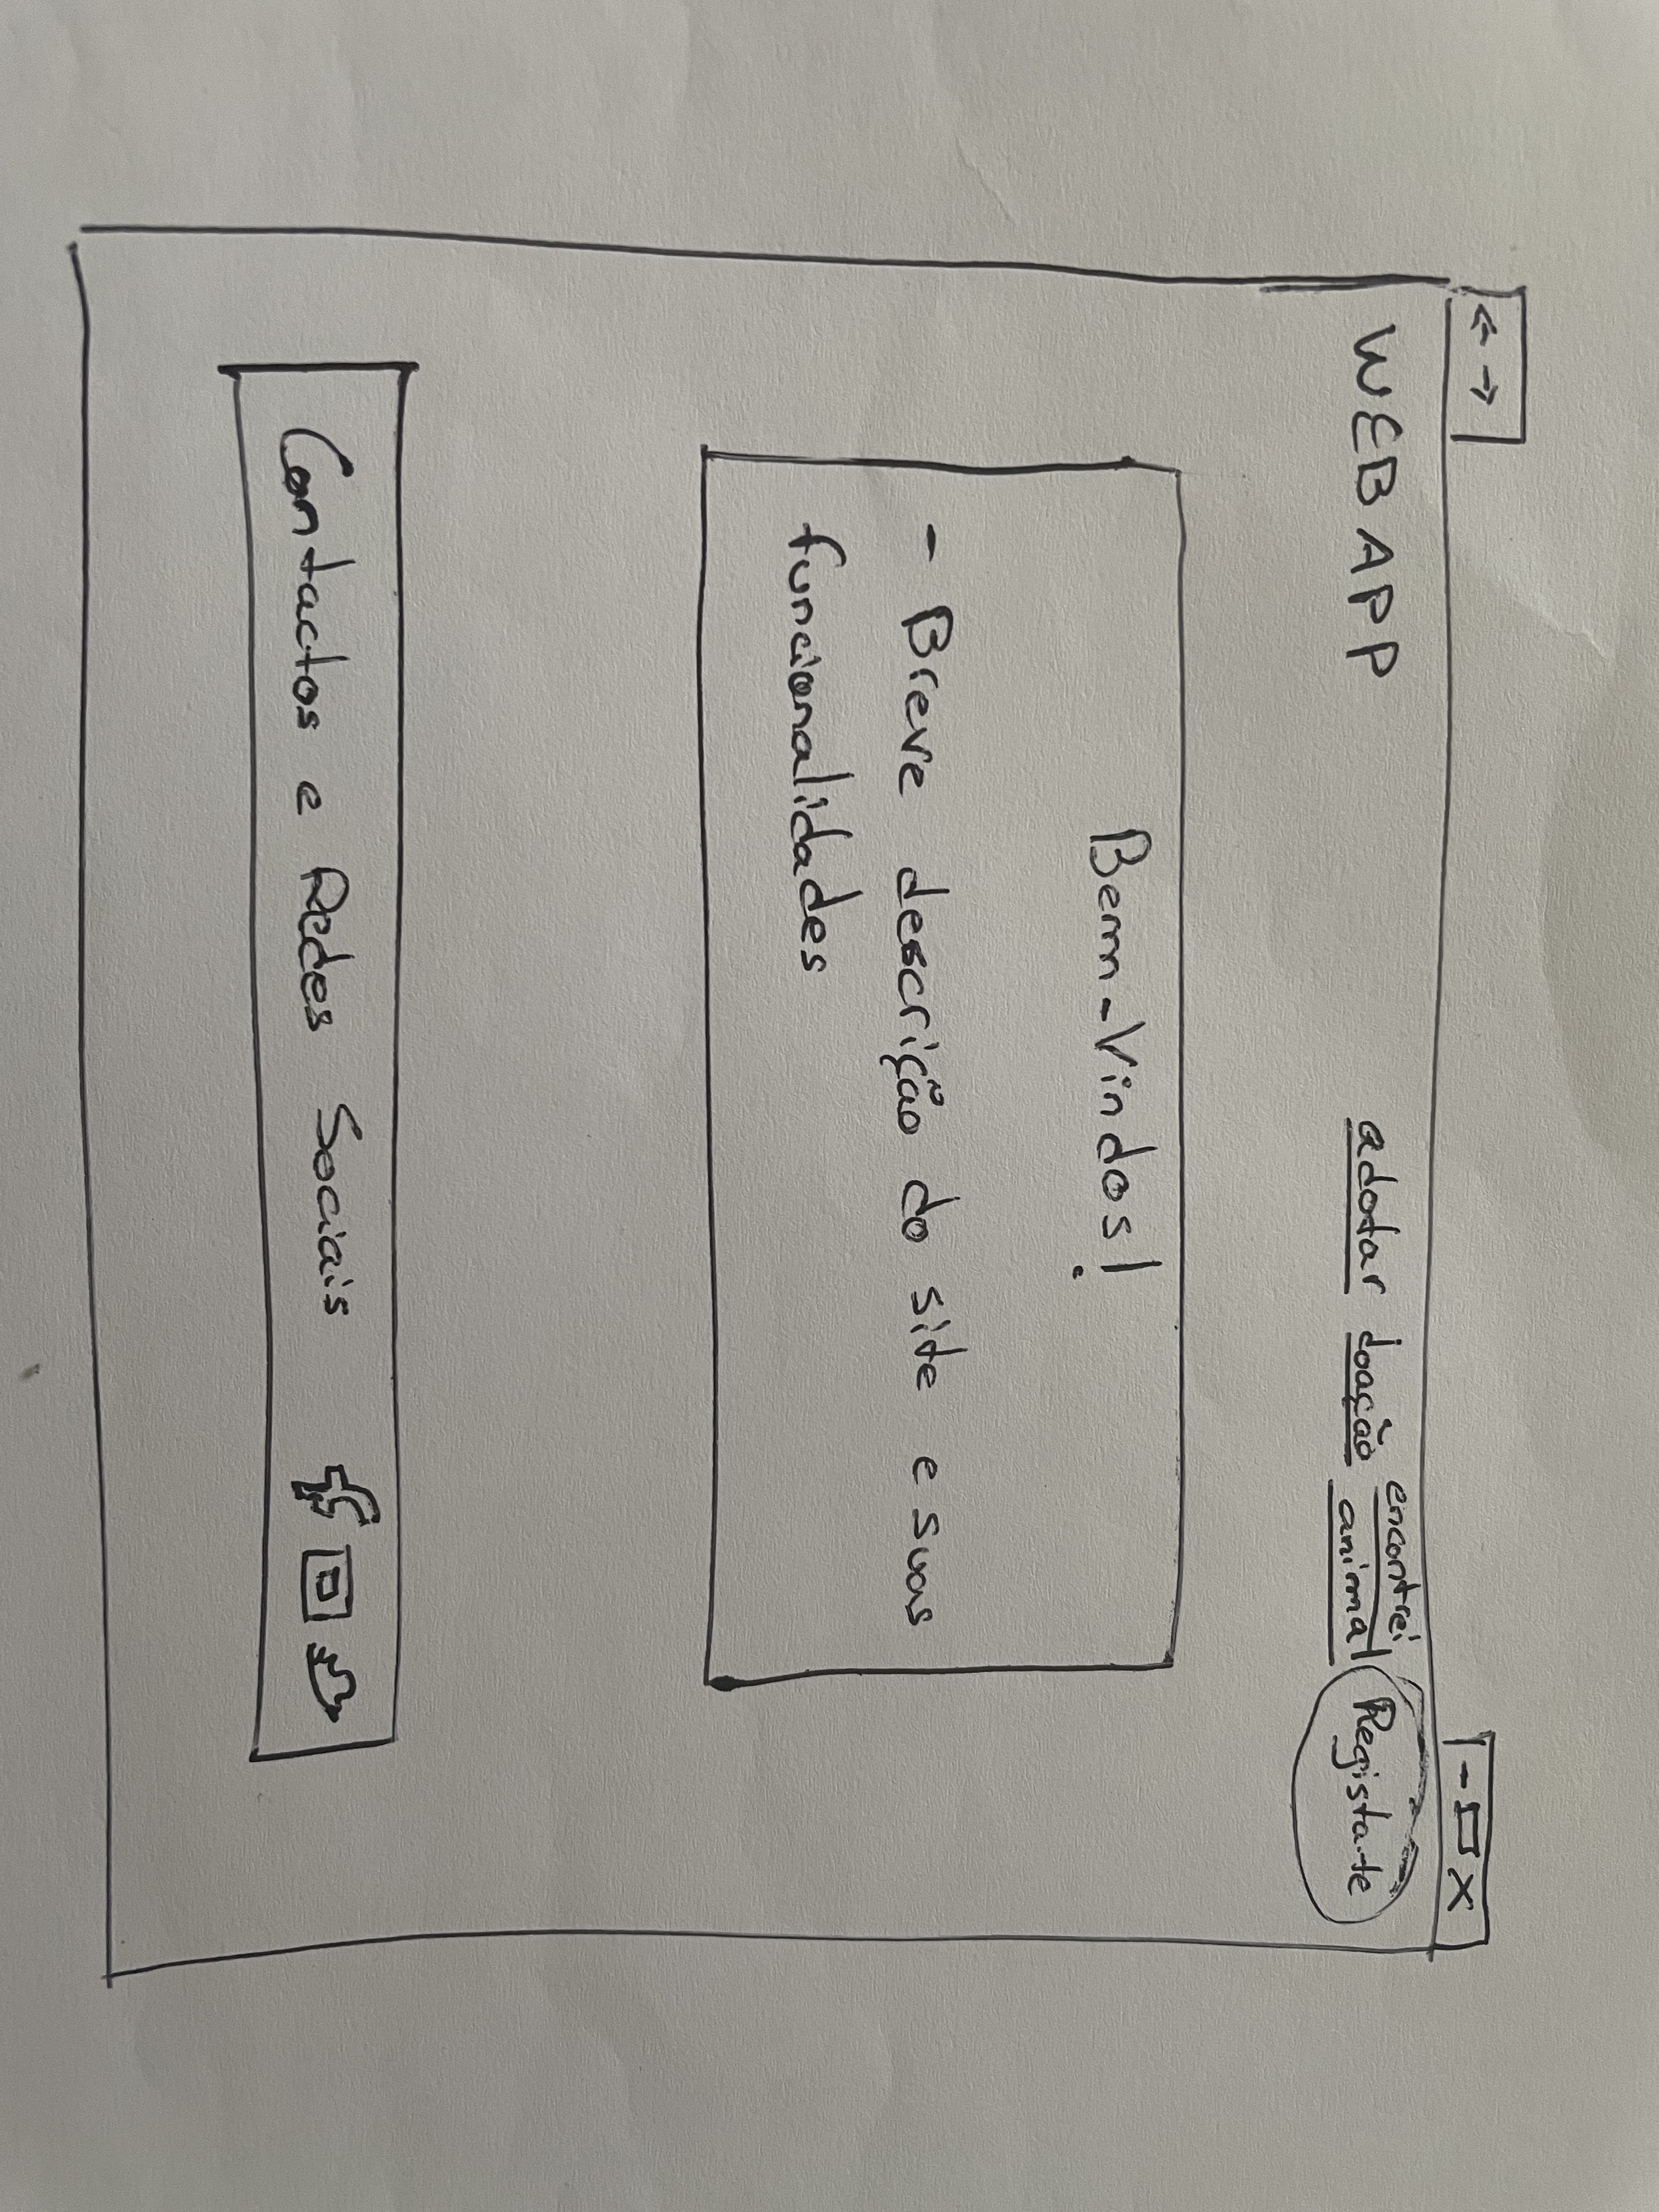 ← →
- □ X
WEB APP
adotar doação encontrei animal Registate
Bem-Vindos!
- Breve descrição do site e suas
funcionalidades
Contactos e Redes Sociais f